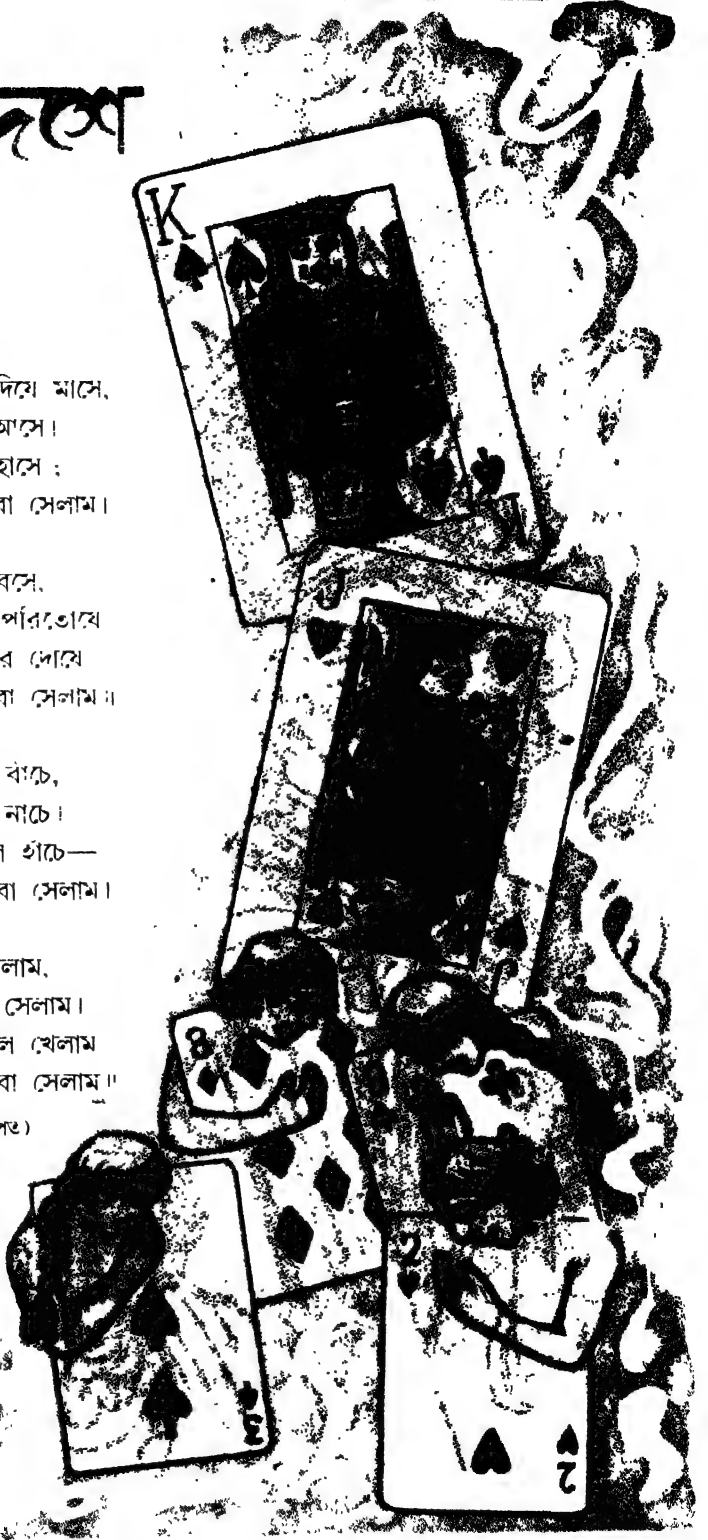 দেশে
K
দিয়ে মাসে,
আসে।
হাসে ;
বা সেলাম।
বসে,
পরিতোষে
র দোষে
বা সেলাম॥
J
বাঁচে,
নাচে।
হাঁচে—
বা সেলাম।
লাম,
সেলাম।
ল খেলাম
বা সেলাম॥
8
2
3
2